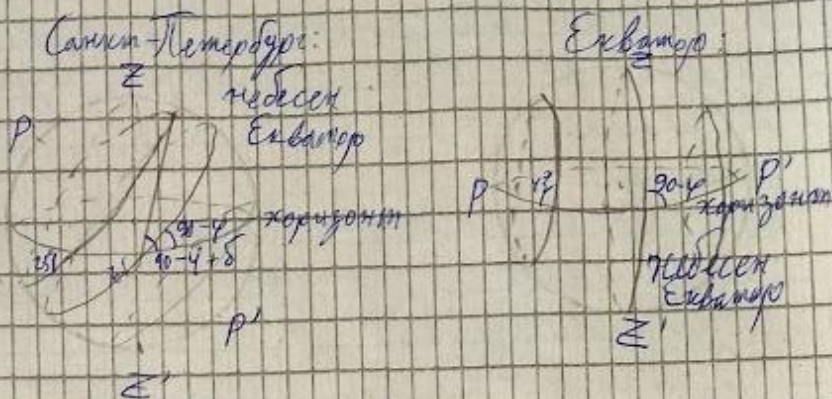 Санкт-Петербург:
Z
небесен
Екватор
P
хоризонт
90-φ
90-φ+δ
P'
Z'
Екватор:
Z
P
90-φ
P'
хоризонт
Небесен
Екватор
Z'